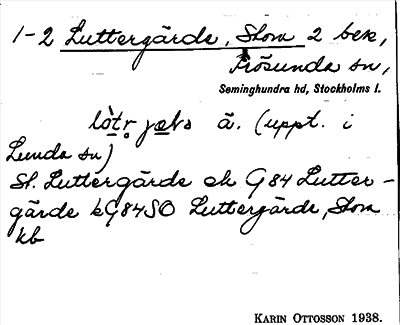 1-2 Luttergärde, Stom 2 bek,
Frösunda sn,
Seminghundra hd, Stockholms l.
lòtr jæḷs ä. (uppt. i
Lunda sn)
St. Luttergärde ek G84 Lutter-
gärde kG84SO Luttergärde, Stom
kb
KARIN OTTOSSON 1938.